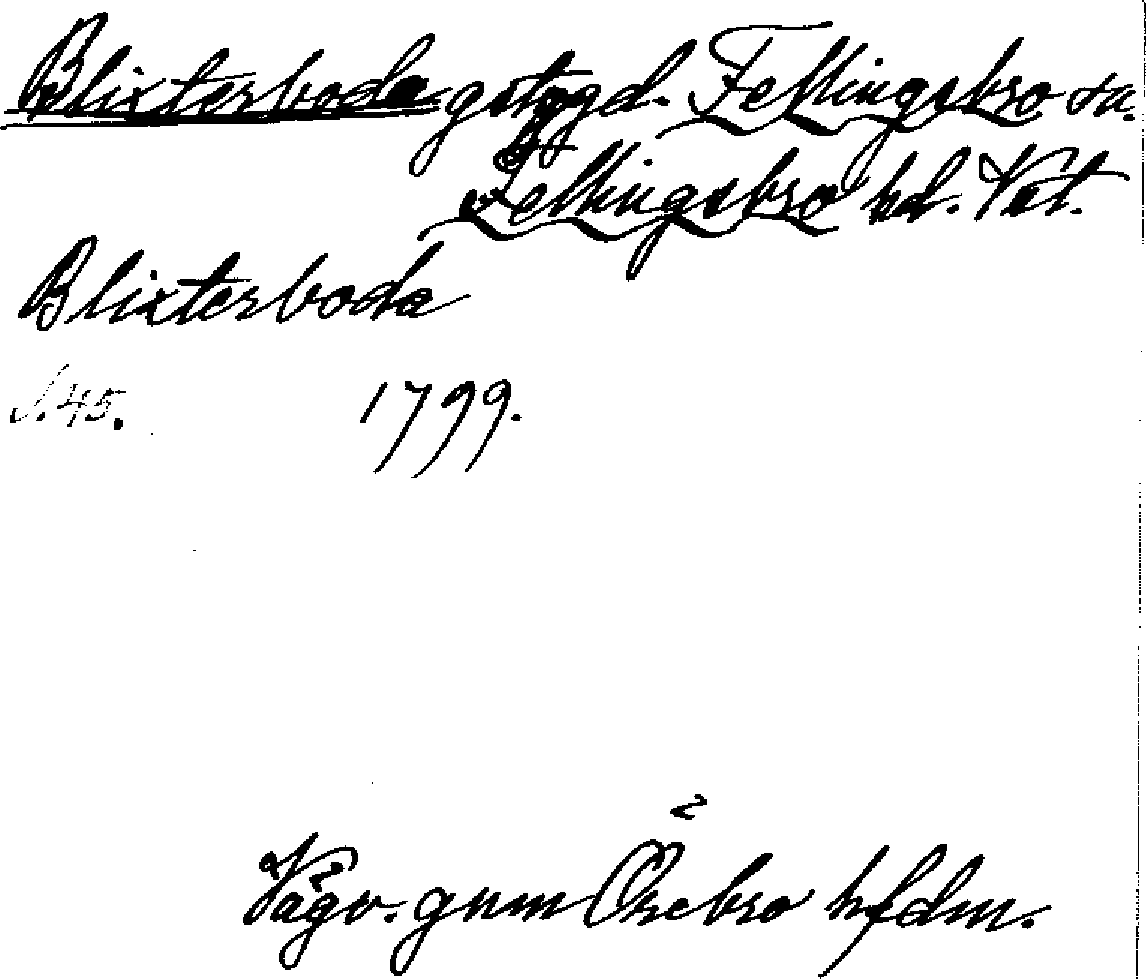 Blixterboda gstggd. Fellingsbro sn.
Fellingsbro hd. Vstm.
Blixterboda
S. 45. 1799.
Vägv. gnm Örebro hfdm.